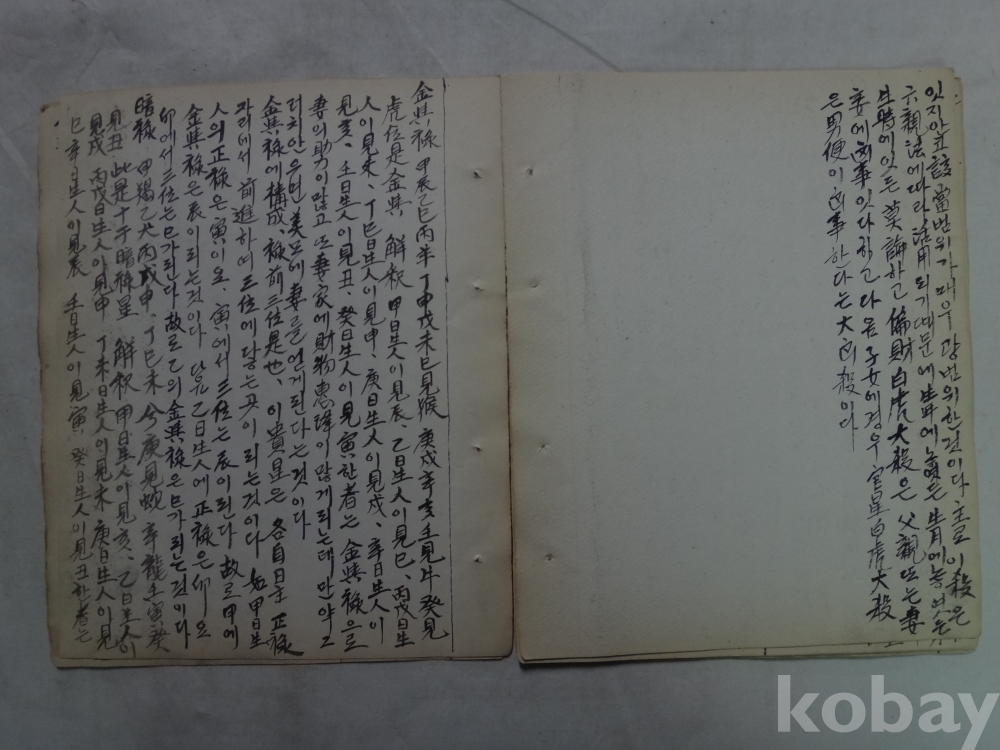 잇지안코 該當범위가 매우 광범위한것이다 主로 이 殺은
六親法에따라 活用되기때문에 生年에 놓은 生月에놓엿든
生時에잇든 莫論하고 偏財白虎大殺은 父親또는 妻
妻에 凶事잇다하고 다음 子女에경우 官星白虎大殺
은 男便이 凶事하다는 大凶殺이다
金輿祿 甲辰乙巳丙羊 丁申戊未己見猴 庚戌辛亥壬見牛癸見
虎位是金輿 解釈 甲日生人이見辰、乙日生人이見巳、丙戊日生
人이見未、丁己日生人이見申、庚日生人이見戍、辛日生人이
見亥、壬日生人이見丑、癸日生人이見寅한者는 金輿祿으로
妻의助力이많고 또妻家에財物惠澤이많게되는데 만약그
러치안으면 美모에妻를 얻게된다는것이다
金輿祿에構成、祿前三位是也、이貴星은 各自日主 正祿
자리에서 前進하여 三位에 닿는곳이 되는것이다 如甲日生
人의正祿은 寅이요、寅에서三位는 辰이된다 故로甲에
金輿祿은 辰이되는것이다 닿 乙日生人에正祿은 卯요
卯에서三位는 巳가된다 故로乙의金輿祿은 巳가되는것이다
暗祿 甲猪乙犬丙戊申、丁己未兮庚見蛇 辛龍壬寅癸
見丑 此是十干暗祿星 解釈 甲日生人이見亥、乙日生人이
見戍 丙戊日生人이見申 丁未日生人이見未 庚日生人이見
巳 辛日生人이見辰 壬日生人이見寅 癸日生人이見丑한者는
kobay